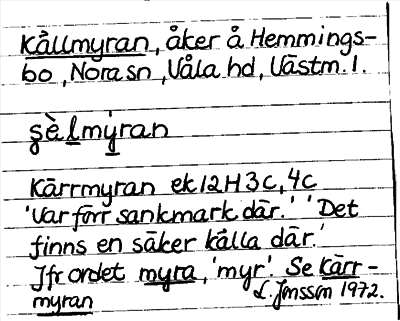 Källmyran, åker å Hemmings-
bo, Nora sn, Våla hd, Västm. l.
s̯èl̲mẏran
Kärrmyran ek 12H 3c, 4c
'Var förr sankmark där.' 'Det
finns en säker källa där.'
Jfr ordet myra, 'myr'. Se Kärr-
myran L. Jonsson 1972.